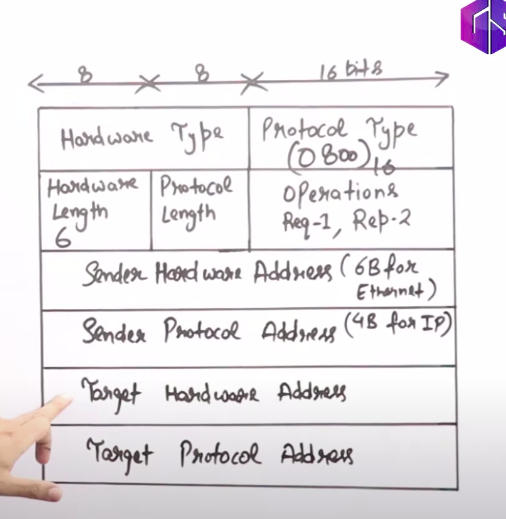 8 8 16 bits
Hardware Type
Protocol Type
(0800)16
Hardware
Length
6
Protocol
Length
Operations
Req-1, Rep-2
Sender Hardware Address (6B for
Ethernet)
Sender Protocol Address (4B for IP)
Target Hardware Address
Target Protocol Address